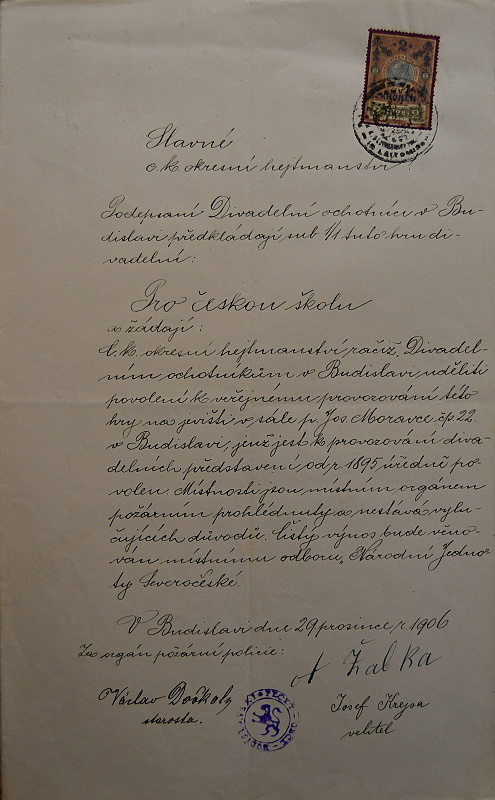 2
2
Slavné
c. k. okresní hejtmanství!
Podepsaní Divadelní ochotníci v Bu-
dislavi předkládají sub 1/1 tuto hru di-
vadelní:
Pro českou školu
a žádají:
C. k. okresní hejtmanství račiž Divadel-
ním ochotníkům v Budislavi uděliti
povolení k veřejnému provozování této
hry na jevišti v sále p. Jos. Moravce čp 22.
v Budislavi, jenž jest k provozování diva-
delních představení, od r. 1895 úředně po-
volen. Místnosti jsou místním orgánem
požárním prohlédnuty a nestává vylu-
čujících důvodů. Čistý výnos bude věno-
ván místnímu odboru „Národní Jedno-
ty Severočeské.
V Budislavi dne 29 prosince, r. 1906
Za orgán požární policie:
A Žabka
Václav
starosta.
Josef Krejsa
velitel